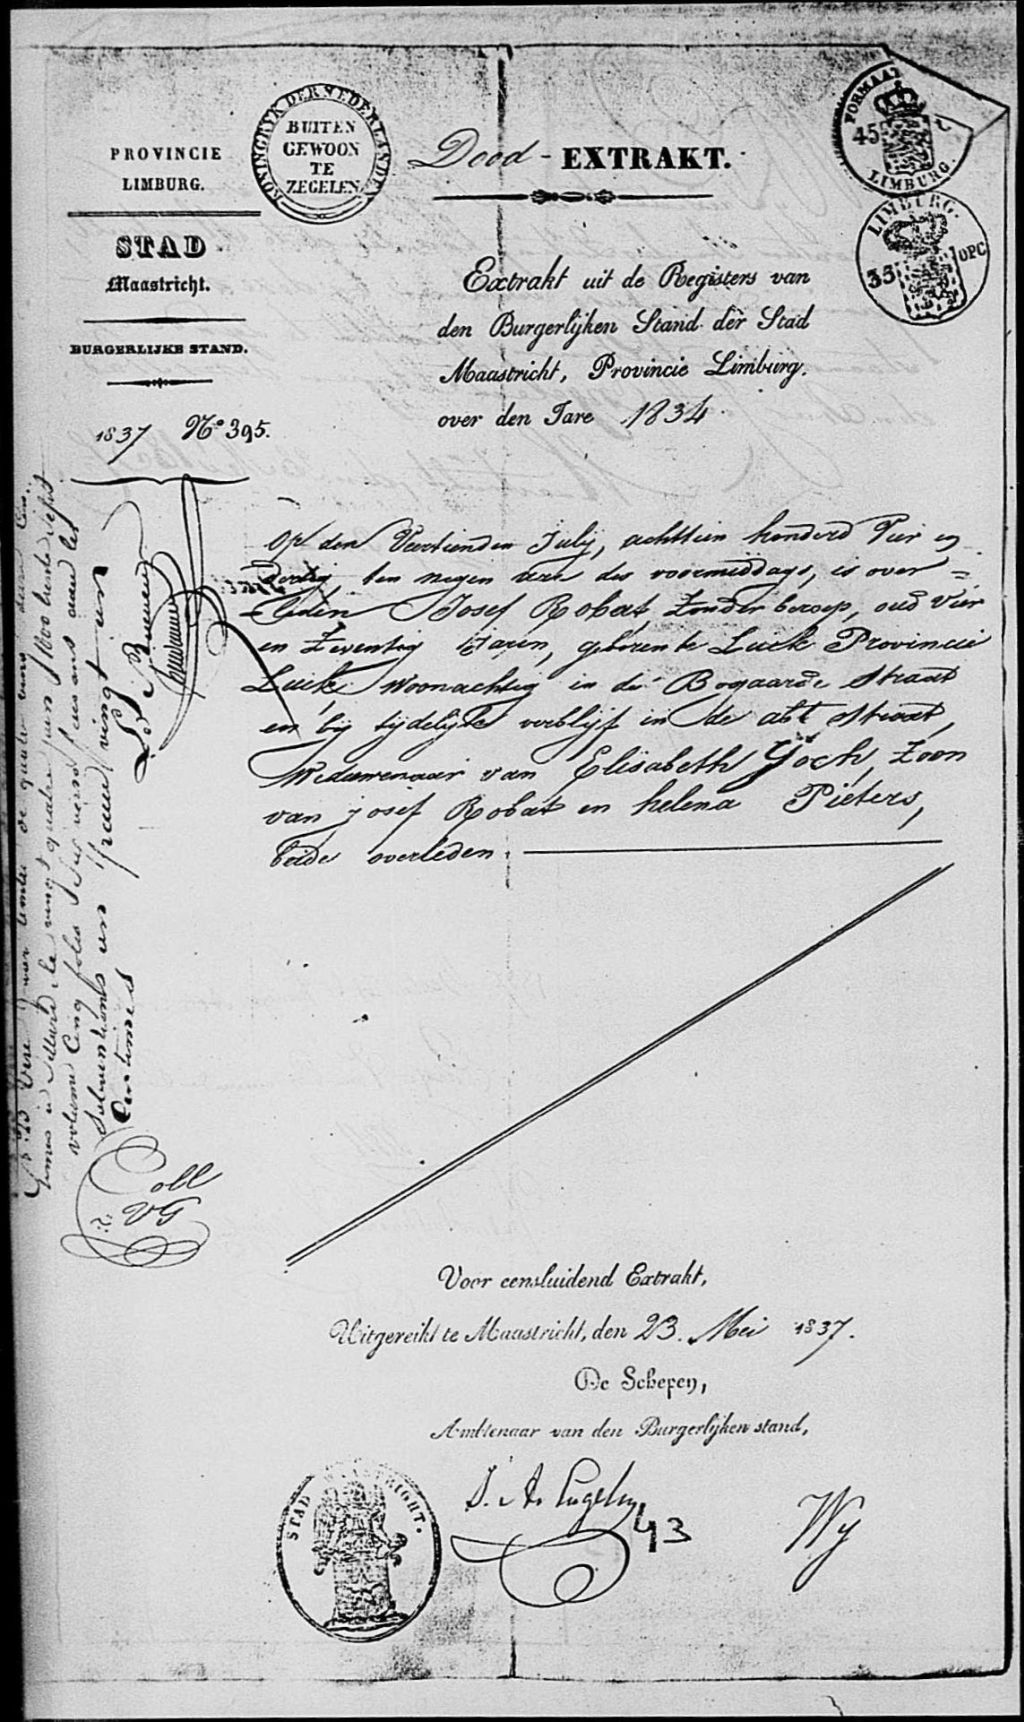 PROVINCIE
LIMBURG.
STAD
Maastricht.
BURGERLIJKE STAND.
1837 No 395.
KONINGRYK DER NEDERLANDEN
BUITEN
GEWOON
TE
ZEGELEN
Dood - EXTRAKT.
FORMAAT
45 C
LIMBURG.
LIMBURG.
35 OPC
Extrakt uit de Registers van
den Burgerlijken Stand der Stad
Maastricht, Provincie Limburg.
over den Jare 1834.
Op den Veertienden July, achttien honderd Vier en
dertig, ten negen uren des voormiddags, is over=
leden Josef Robat, Zonder beroep, oud Vier
en Zeventig Jaren, geboren te Luik Provincie
Luik, woonachtig in de Bogaarde Straat
en by tijdelijk verblijf in de abt straat,
Weduwenaar van Elisabeth Joch, Zoon
van josef Robat en helena Pieters,
beide overleden.
volume Cinq folio
un franc vingt un
Centimes
Coll
VG
Voor eensluidend Extrakt,
Uitgereikt te Maastricht, den 23. Mei 1837.
De Schepen,
Ambtenaar van den Burgerlijken stand,
STAD
43
Wy